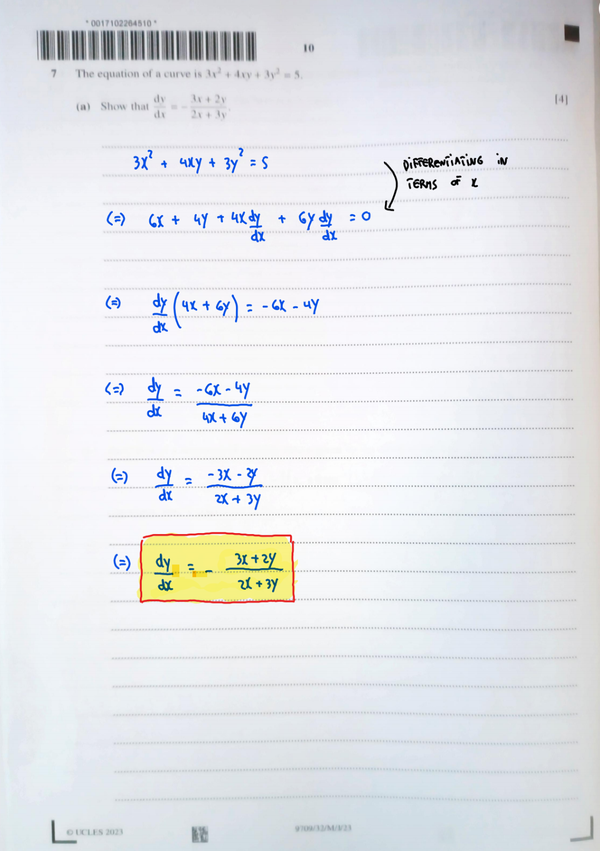 * 0017102264510 *
10
7 The equation of a curve is 3x² + 4xy + 3y² = 5.
(a) Show that dy/dx = − (3x + 2y)/(2x + 3y). [4]
3x² + 4xy + 3y² = 5
DIFFERENTIATING IN
TERMS OF x
(=) 6x + 4y + 4x dy/dx + 6y dy/dx = 0
(=) dy/dx (4x + 6y) = -6x - 4y
(=) dy/dx = (-6x - 4y)/(4x + 6y)
(=) dy/dx = (-3x - 2y)/(2x + 3y)
(=) dy/dx = - (3x + 2y)/(2x + 3y)
© UCLES 2023 9709/32/M/J/23